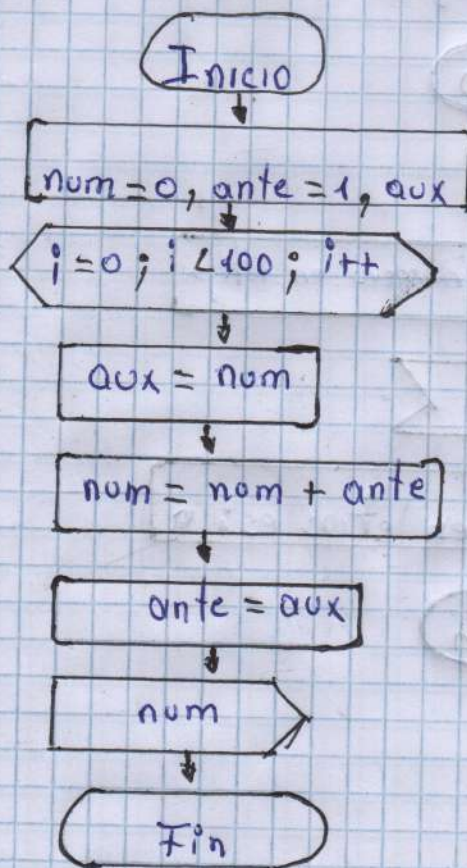 Inicio
num = 0, ante = 1, aux
i = 0; i < 100; i++
aux = num
num = num + ante
ante = aux
num
Fin